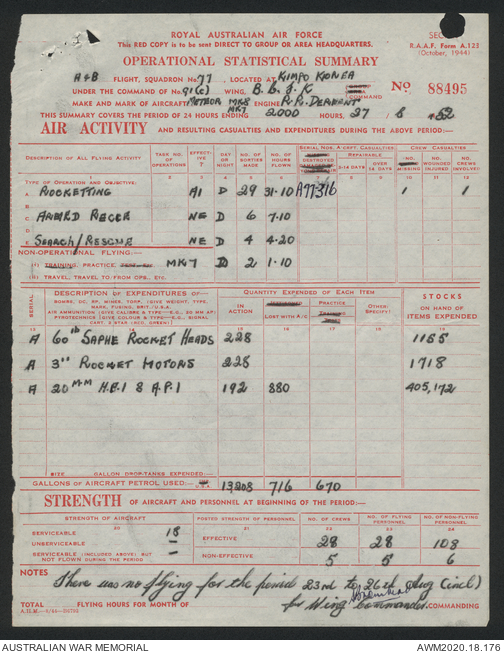 ROYAL AUSTRALIAN AIR FORCE
This RED COPY is to be sent DIRECT TO GROUP OR AREA HEADQUARTERS.
R.A.A.F. Form A.123
(October, 1944)
OPERATIONAL STATISTICAL SUMMARY
A & B FLIGHT, SQUADRON No. 77, LOCATED AT KIMPO KOREA
UNDER THE COMMAND OF No. 91(C) WING, B.C.F.K COMMAND No 88495
MAKE AND MARK OF AIRCRAFT METEOR MK8 MK7 ENGINE R.R. DERWENT
THIS SUMMARY COVERS THE PERIOD OF 24 HOURS ENDING 2000 HOURS, 27 / 8 /1952
AIR ACTIVITY AND RESULTING CASUALTIES AND EXPENDITURES DURING THE ABOVE PERIOD:—
SERIAL NOS. A/CRAFT CASUALTIES CREW CASUALTIES
DESCRIPTION OF ALL FLYING ACTIVITY TASK NO. OF OPERATIONS EFFECTIVE ? DAY OR NIGHT NO. OF SORTIES MADE NO. OF HOURS FLOWN DESTROYED REPAIRABLE 2-14 DAYS OVER 14 DAYS NO. MISSING NO. WOUNDED INJURED NO. CREWS INVOLVED
1 2 3 4 5 6 7 8 9 10 11 12
TYPE OF OPERATION AND OBJECTIVE:
ROCKETTING A1 D 29 31.10 A77316 1 1
ARMED RECCE NE D 6 7.10
SEARCH/RESCUE NE D 4 4.20
NON-OPERATIONAL FLYING:—
(I) TRAINING, PRACTICE MK7 D 2 1.10
(II) TRAVEL, TRAVEL TO FROM OPS., ETC.
SERIAL DESCRIPTION OF EXPENDITURES OF— QUANTITY EXPENDED OF EACH ITEM STOCKS
BOMBS, DC, RP, MINES, TORP, (GIVE WEIGHT, TYPE, MARK, FUZING, BRIT./U.S.A.
AIR AMMUNITION (GIVE CALIBRE & TYPE—E.G., 20 MM AP)
PYROTECHNICS (GIVE COLOUR & TYPE—E.G., SIGNAL CART. 2 STAR (RED, GREEN))
IN ACTION LOST WITH A/C PRACTICE OTHER (SPECIFY) ON HAND OF ITEMS EXPENDED
A 60 lb SAPHE ROCKET HEADS 228 1165
A 3" ROCKET MOTORS 228 1718
A 20 MM H.E.I & A.P.I 192 880 405,172
SIZE GALLON DROP-TANKS EXPENDED:—
GALLONS OF AIRCRAFT PETROL USED:— 13208 716 670
STRENGTH OF AIRCRAFT AND PERSONNEL AT BEGINNING OF THE PERIOD:—
STRENGTH OF AIRCRAFT POSTED STRENGTH OF PERSONNEL NO. OF CREWS NO. OF FLYING PERSONNEL NO. OF NON-FLYING PERSONNEL
SERVICEABLE 18 EFFECTIVE 28 28 108
UNSERVICEABLE —
SERVICEABLE (INCLUDED ABOVE) BUT NOT FLOWN DURING THE PERIOD — NON-EFFECTIVE 5 5 6
NOTES There was no flying for the period 23rd to 26th Aug (incl)
for Wing Commander COMMANDING
TOTAL FLYING HOURS FOR MONTH OF
AUSTRALIAN WAR MEMORIAL AWM2020.18.176